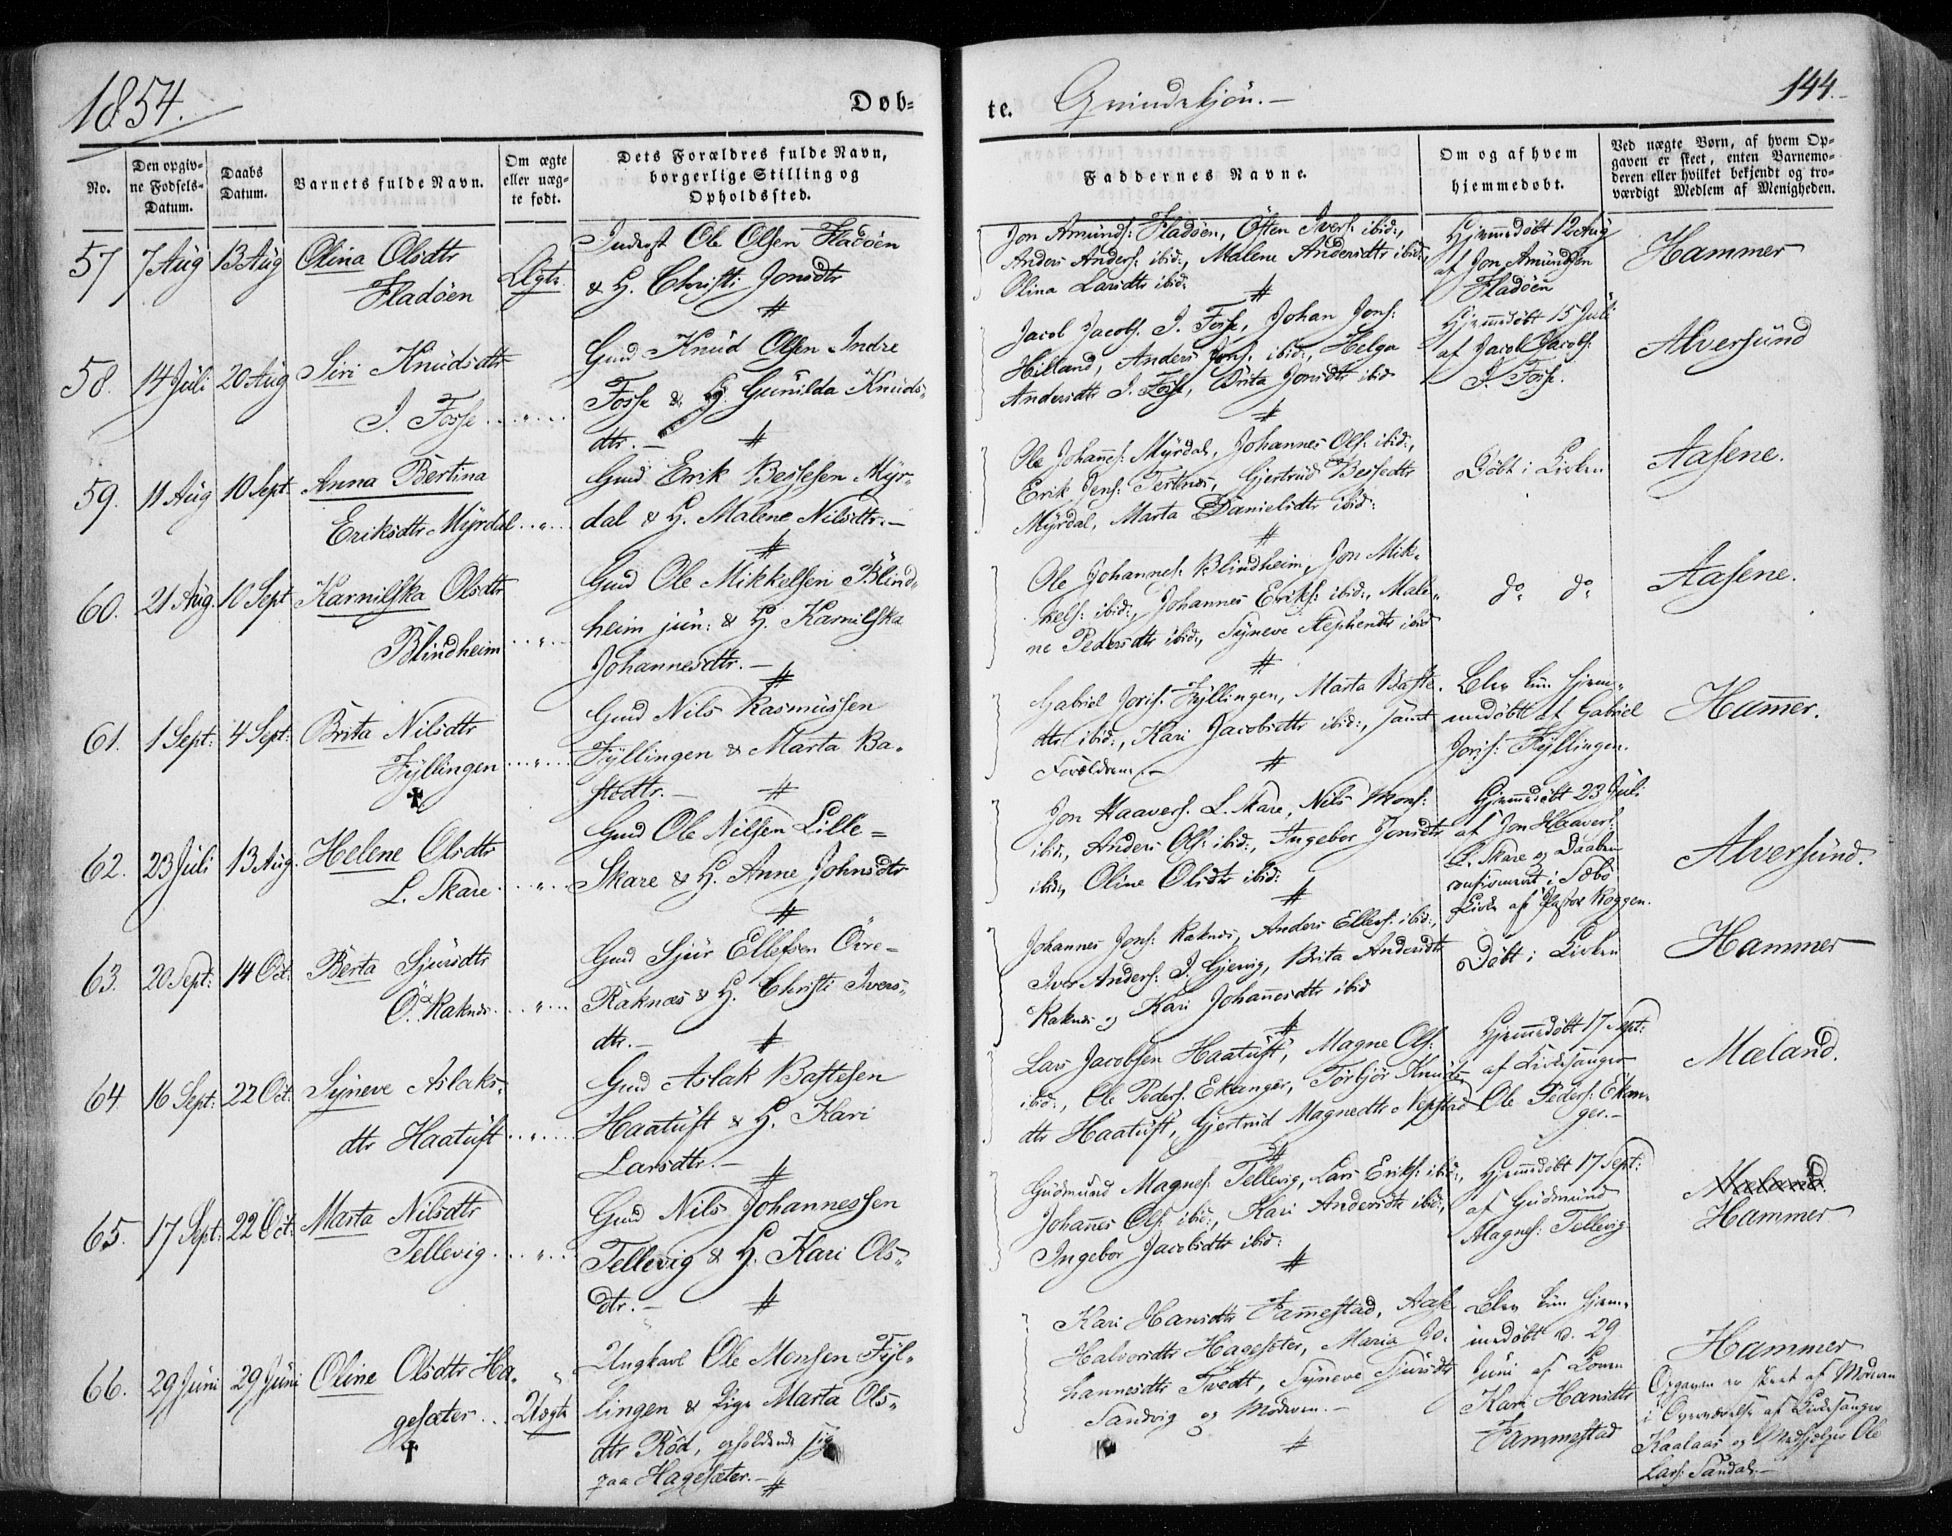 1854.
Døb-
te. Qvindekjøn.-
144.
No.
Den opgiv-
ne Fødsels-
Datum.
Daabs
Datum.
Barnets fulde Navn.
Om ægte
eller uæg-
te født.
Dets Forældres fulde Navn,
borgerlige Stilling og
Opholdssted.
Faddernes Navne.
Om og af hvem
hjemmedøbt.
Ved uægte Børn, af hvem Op-
gaven er skeet, enten Barnemo-
deren eller hvilket bekjendt og tro-
værdigt Medlem af Menigheden.
57 7 Aug 13 Aug Olina Olsdtr
Fladöen
Ægte.
Inderst Ole Olsen Fladöen
& H. Christi Jonsdtr
Jon Amunds: Fladöen, Östen Ivers: ibid:,
Anders Anders: ibid:, Malene Andersdtr ibid:,
Olina Larsdtr ibid:
Hjemmedöbt 12 Aug
af Jon Amundsen
Fladöen
Hammer
58. 14 Juli 20 Aug Siri Knudsdtr
I. Fosse
Gmd Knud Olsen Indre
Fosse & H. Gunilda Knuds-
dtr.-
Jacob Jacobs: I. Fosse, Johan Jons:
Hilland, Anders Jons: ibid:, Helga
Andersdtr I. Fosse, Brita Jonsdtr ibid
Hjemmedöbt 15 Juli
af Jacob Jacobs:
I. Fosse.
Alversund
59. 11 Aug 10 Sept. Anna Bertina
Eriksdtr Myrdal
Gmd Erik Bessesen Myr-
dal & H. Malene Nilsdtr.-
Ole Johans: Myrdal, Johannes Ols: ibid:,
Erik Jens: Tertnes, Gjertrud Bessedtr
Myrdal, Marta Danielsdtr ibid:
Döbt i Kirken
Aasene.
60. 21 Aug. 10 Sept Karnilska Olsdtr
Blindheim
Gmd Ole Mikkelsen Blind-
heim jun: & H. Karnilska
Johannesdtr.-
Ole Johannes: Blindheim, Jon Mik-
kels: ibid:, Johannes Eriks: ibid:, Male-
ne Pedersdtr ibid:, Syneve Stephensdtr ibid
do do
Aasene.
61. 1 Sept: 4 Sept: Brita Nilsdtr
Fyllingen
Gmd Nils Rasmussen
Fyllingen & Marta Ba-
stedtr.-
Gabriel Joris: Fyllingen, Marta Baste-
dtr ibid:, Kari Jacobsdtr ibid:, samt
Forældrene.-
Blev kun hjem-
medöbt af Gabriel
Joris: Fyllingen.
Hammer.
62. 23 Juli 13 Aug. Helene Olsdtr
L. Skare
Gmd Ole Nilsen Lille-
Skare & H. Anne Johnsdtr
Jon Haavers: L. Skare, Nils Mons:
ibid:, Anders Ols: ibid:, Ingebor Jonsdtr
ibid:, Oline Olsdtr ibid:
Hjemmedöbt 23 Juli
af Jon Haavers:
L. Skare og Daaben
confirmeret i Sæbö
Kirke af Pastor Koggen.
Alversund.
63. 20 Sept: 14 Oct. Berta Sjursdtr
Ö. Raknes
Gmd Sjur Ellefsen Övre-
Raknæs & H. Christi Ivers-
dtr.-
Johannes Jons: Raknes, Anders Ellefs: ibid:,
Iver Anders: I. Gjervig, Brita Andersdtr
Raknes og Kari Johannesdtr ibid
Döbt i Kirken
Hammer
64 16 Sept: 22 Oct. Syneve Aslaks-
dtr Haatuft
Gmd Aslak Bastesen
Haatuft & H. Kari
Larsdtr.-
Lars Jacobsen Haatuft, Magne Ols:
ibid:, Ole Peders: Ekanger, Torbjör Knuds-
dtr Haatuft, Gjertrud Magnedtr Nepstad
Hjemmedöbt 17 Sept:
af Kirkesanger
Ole Peders: Ekan-
ger.-
Mæland.
65. 17 Sept: 22 Oct: Marta Nilsdtr
Tellevig
Gmd Nils Johannessen
Tellevig & H. Kari Ols-
dtr.-
Gudmund Magnes: Tellevig, Lars Eriks: ibid:,
Johannes Ols: ibid:, Kari Andersdtr ibid:,
Ingebor Jacobsdtr ibid:
Hjemmedöbt 17 Sept:
af Gudmund
Magnes: Tellevig
Mæland
Hammer
66. 29 Juni 29 Juni Oline Olsdtr Ha-
gesæter
Uægte
Ungkarl Ole Monsen Fyl-
lingen & Pige Marta Ols-
dtr Röd, opholdende sig
paa Hagesæter.-
Kari Hansdtr Fammestad, Aase
Halvorsdtr Hagesæter, Maria Jo-
hannesdtr Tvedt, Syneve Sjursdtr
Sandvig og Moderen.-
Blev kun hjem-
medöbt d. 29
Juni af Konen
Kari Hansdtr
Fammestad
Hammer
Opgaven er skeet af Moderen
i Overværelse af Kirkesanger
Kaalaas og Medhjelper Ole
Lars: Sandal.-